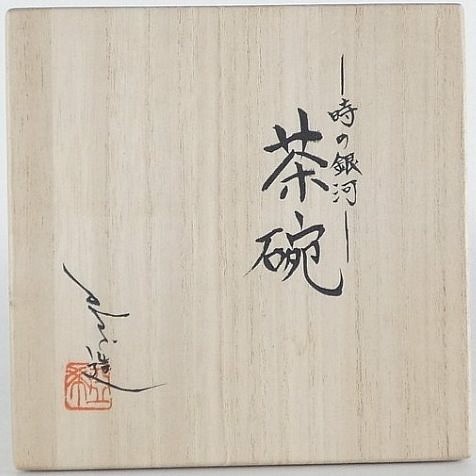 ―時の銀河―
茶碗